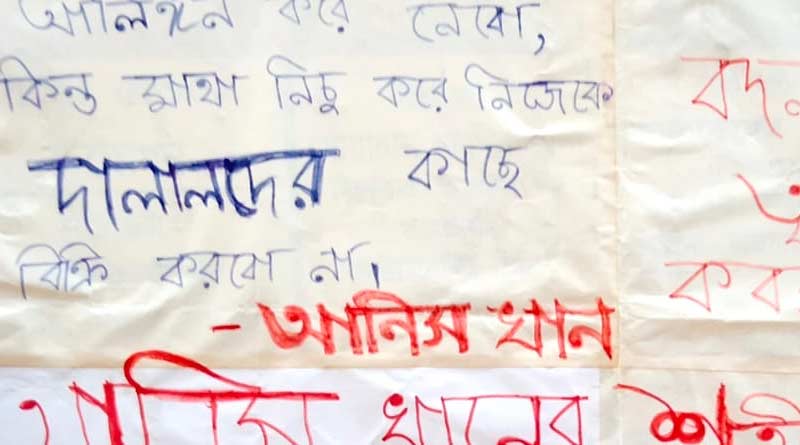 আলিঙ্গন করে নেবো,
কিন্তু মাথা নিচু করে নিজেকে
দালালদের কাছে
বিক্রি করবো না।
- আনিস খান
আনিস খানের